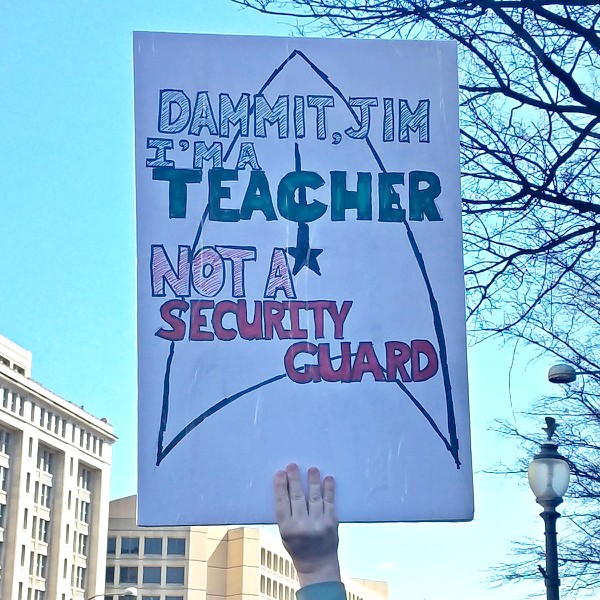 DAMMIT, JIM
I'M A
TEACHER
NOT A
SECURITY
GUARD